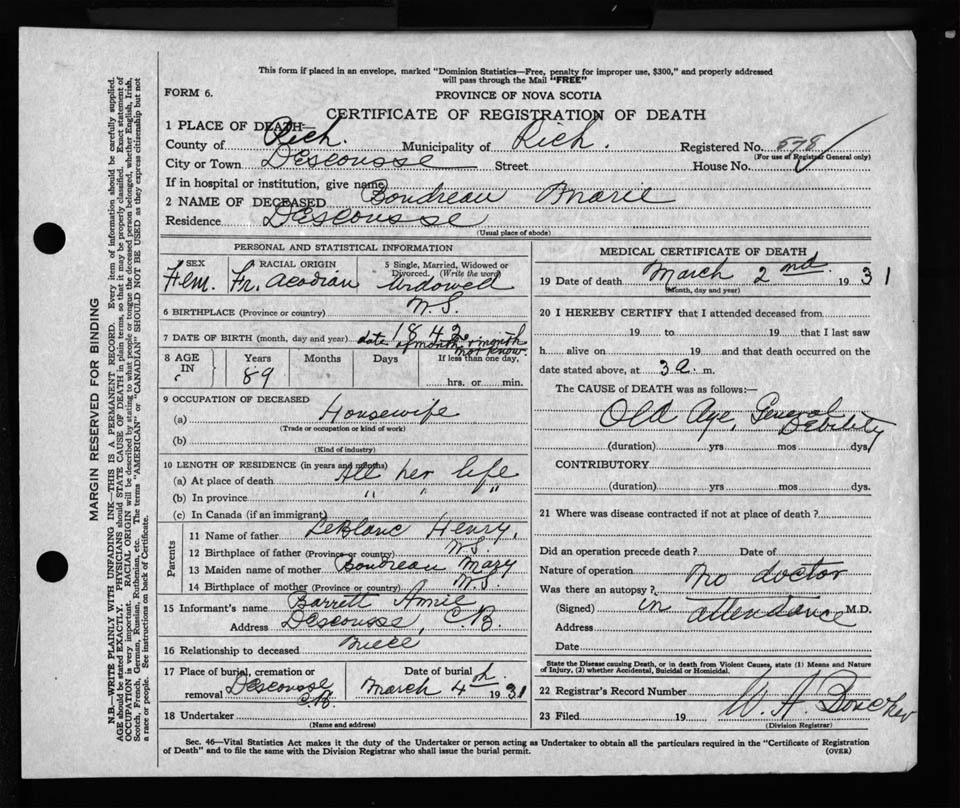 This form if placed in an envelope, marked "Dominion Statistics—Free, penalty for improper use, $300," and properly addressed
will pass through the Mail "FREE"
FORM 6.
PROVINCE OF NOVA SCOTIA
CERTIFICATE OF REGISTRATION OF DEATH
1 PLACE OF DEATH—
County of Rich. Municipality of Rich. Registered No. 578
(For use of Registrar General only)
City or Town Descousse Street House No.
If in hospital or institution, give name
2 NAME OF DECEASED Boudreau Marie
Residence Descousse
(Usual place of abode)
PERSONAL AND STATISTICAL INFORMATION
SEX RACIAL ORIGIN 5 Single, Married, Widowed or Divorced. (Write the word)
Fem. Fr. Acadian Widowed
6 BIRTHPLACE (Province or country) N.S.
7 DATE OF BIRTH (month, day and year) 1842 date of month + month not know.
8 AGE IN Years Months Days If less than one day, hrs. or min.
89
9 OCCUPATION OF DECEASED
(a) Housewife
(Trade or occupation or kind of work)
(b)
(Kind of industry)
10 LENGTH OF RESIDENCE (in years and months)
(a) At place of death All her life
(b) In province " " "
(c) In Canada (if an immigrant)
Parents
11 Name of father LeBlanc Henry,
12 Birthplace of father (Province or country) N.S.
13 Maiden name of mother Boudreau Mary
14 Birthplace of mother (Province or country) N.S.
15 Informant's name Barrett Amie
Address Descousse, C.B.
16 Relationship to deceased Niece
17 Place of burial, cremation or removal Descousse C.B. Date of burial March 4th 1931
18 Undertaker
(Name and address)
MEDICAL CERTIFICATE OF DEATH
19 Date of death March 2nd. 1931
(Month, day and year)
20 I HEREBY CERTIFY that I attended deceased from
19 to 19 that I last saw
h alive on 19 and that death occurred on
date stated above, at 3 a. m.
The CAUSE OF DEATH was as follows:—
Old Age, General Debility
(duration) yrs mos dys.
CONTRIBUTORY
(duration) yrs mos dys.
21 Where was disease contracted if not at place of death?
Did an operation precede death? Date of
Nature of operation No doctor
Was there an autopsy?
(Signed) in attendance M.D.
Address
Date
State the Disease causing Death, or in death from Violent Causes, state (1) Means and Nature
of Injury, (2) whether Accidental, Suicidal or Homicidal.
22 Registrar's Record Number
23 Filed 19 W. A.
(Division Registrar)
Sec. 46—Vital Statistics Act makes it the duty of the Undertaker or person acting as Undertaker to obtain all the particulars required in the "Certificate of Registration
of Death" and to file the same with the Division Registrar who shall issue the burial permit. (OVER)
MARGIN RESERVED FOR BINDING
N.B.—WRITE PLAINLY WITH UNFADING INK—THIS IS A PERMANENT RECORD. Every item of information should be carefully supplied.
AGE should be stated EXACTLY. PHYSICIANS should STATE CAUSE OF DEATH in plain terms, so that it may be properly classified. Exact statement of
OCCUPATION is very important. RACIAL ORIGIN will be described by stating to what people or tongue the deceased person belonged, whether English, Irish,
Scotch, French, German, Russian, Ruthenian, etc. The terms "AMERICAN" or "CANADIAN" SHOULD NOT BE USED as they express citizenship but not
a race or people. See instructions on back of Certificate.